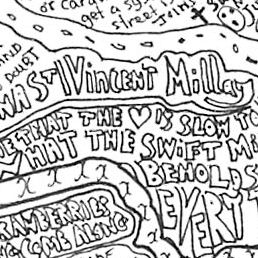 or car
get a sy
street is
Joins
AND
DOUBT
NA ST VINCENT MILLAY
THAT THE ♡ IS SLOW TO
WHAT THE SWIFT MI
BEHOLDS
EVERY T
RANBERRIES
COME ALONG